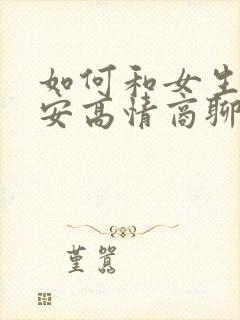 如何和女生
安高情商聊
堇嚣